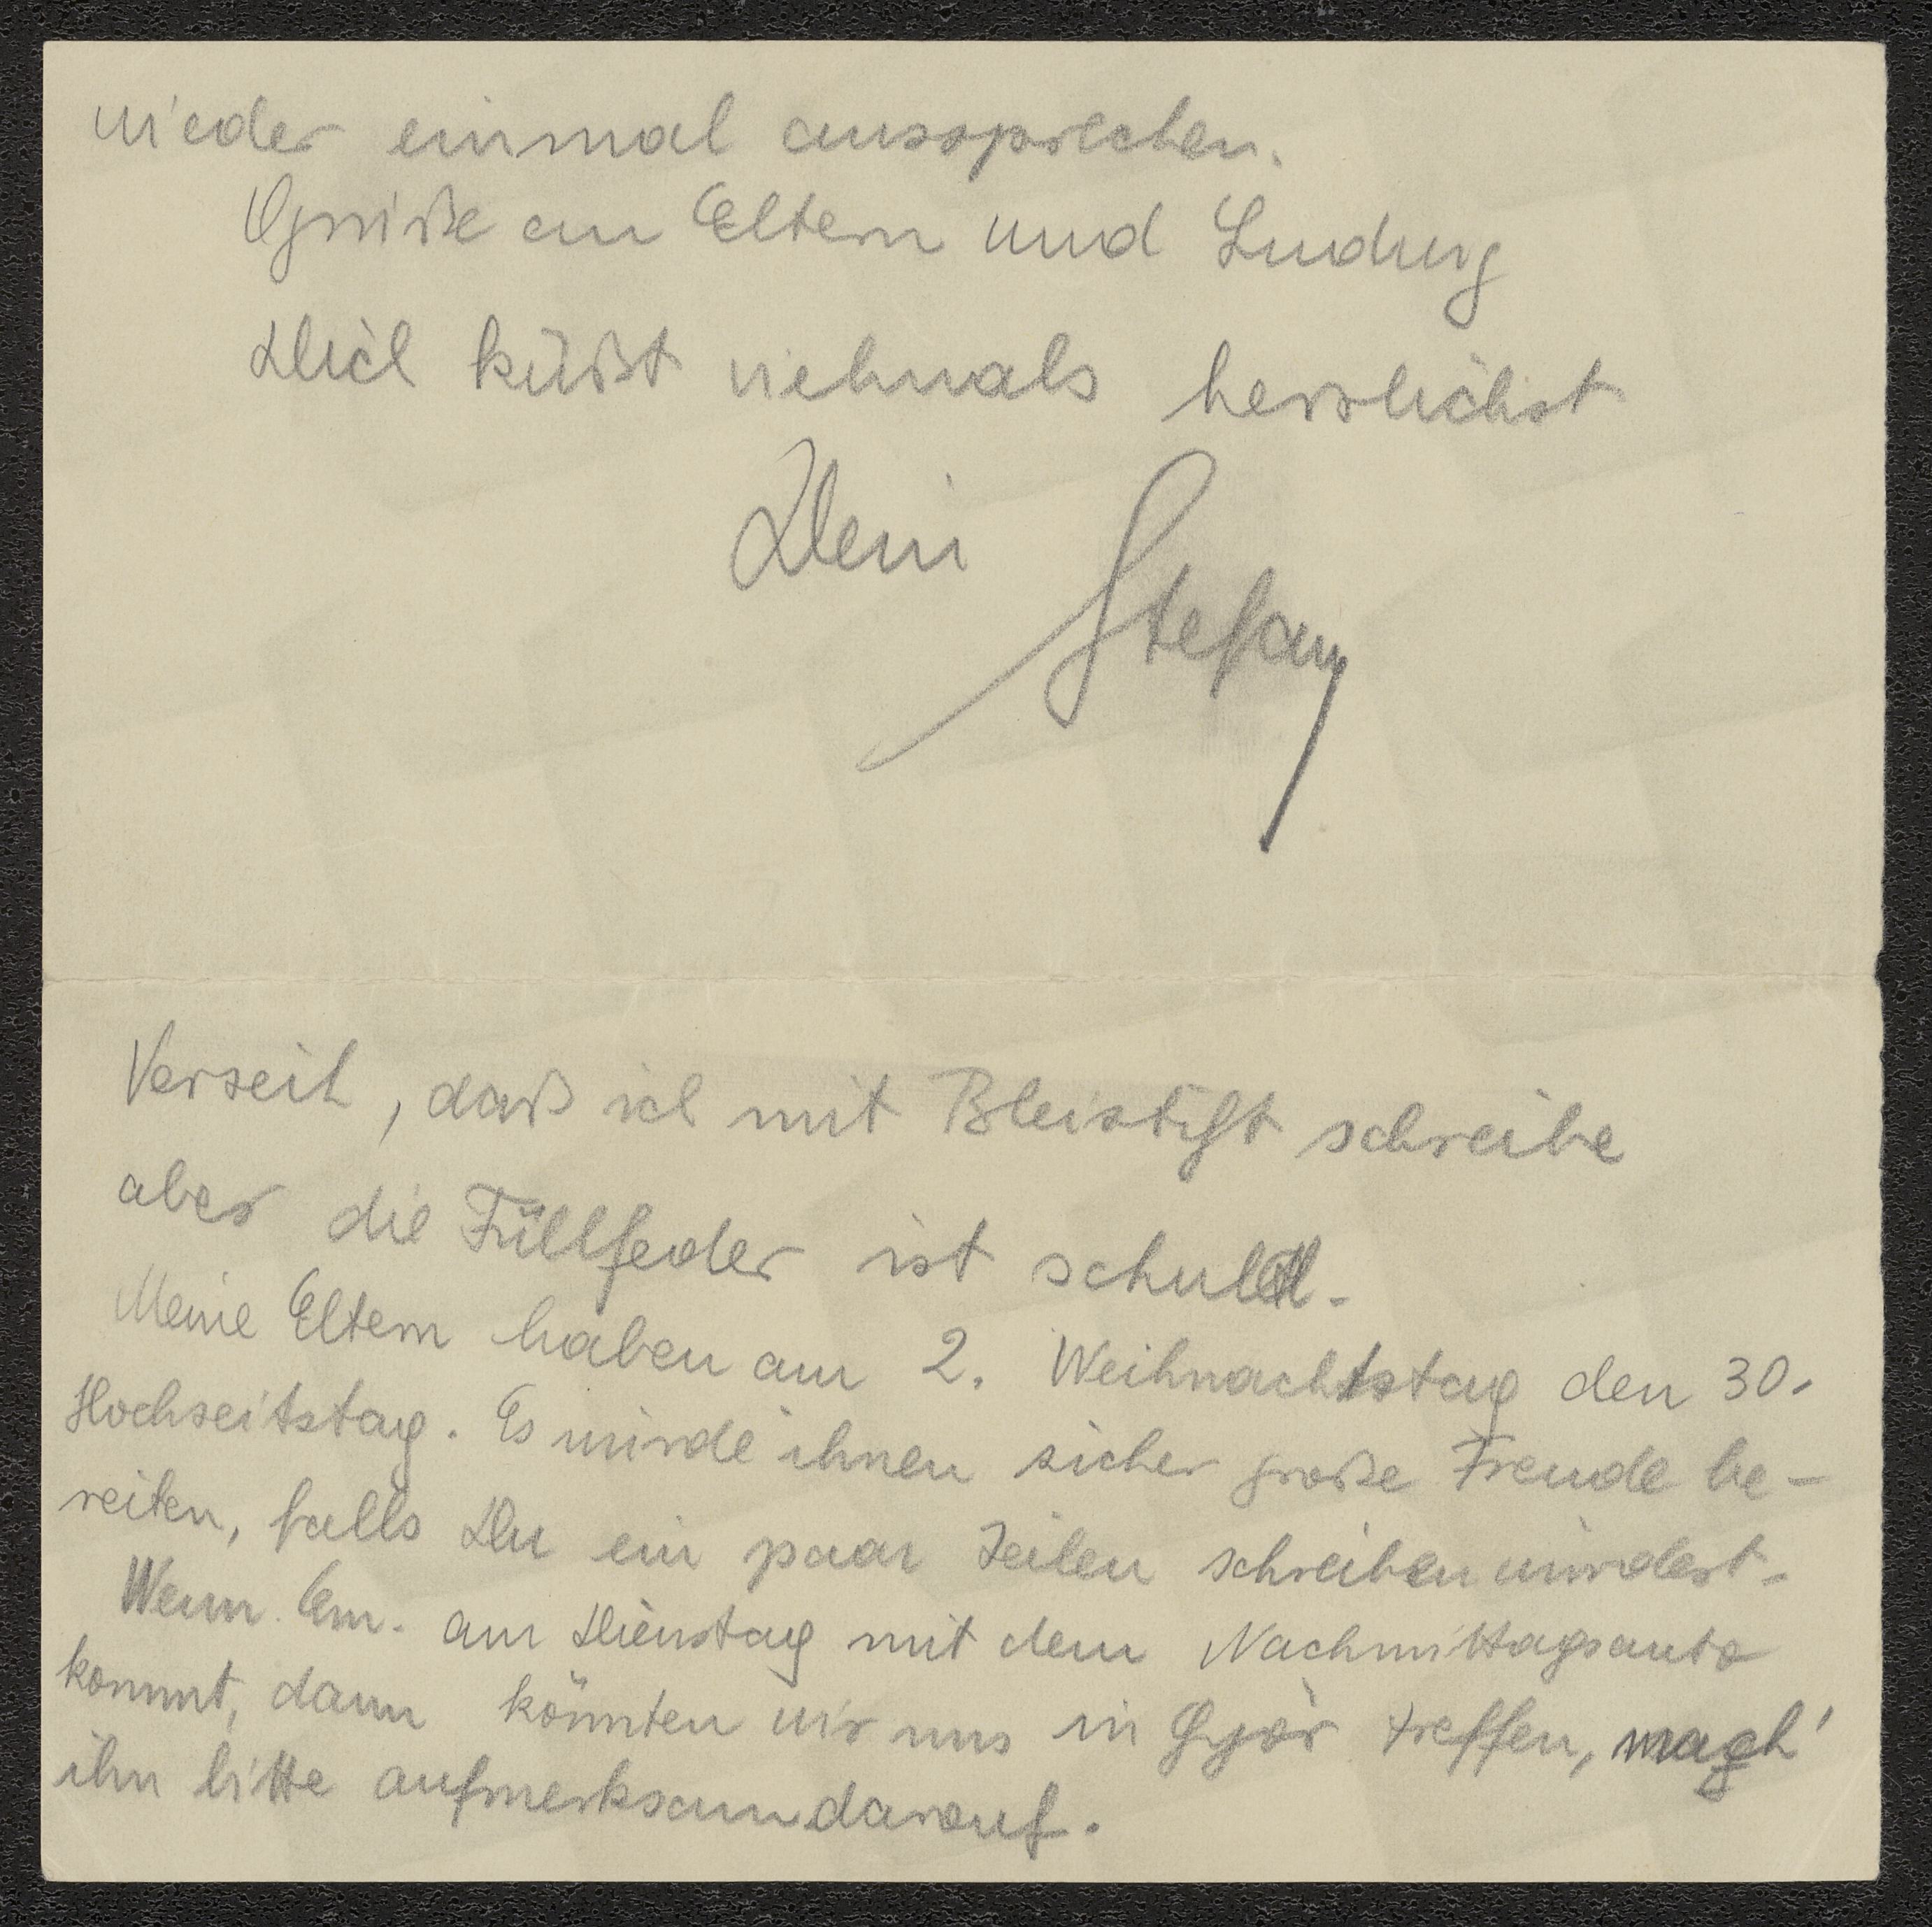 wieder einmal aussprechen.
Grüße an Eltern und Ludwig
Dich küßt vielmals herzlichst
Dein Stefan
Verzeih, daß ich mit Bleistift schreibe
aber die Füllfeder ist schuld.
Meine Eltern haben am 2. Weihnachtstag den 30.
Hochzeitstag. Es würde ihnen sicher große Freude be-
reiten, falls Du ein paar Zeilen schreiben würdest.
Wenn Em. am Dienstag mit dem Nachmittagsauto
kommt, dann könnten wir uns in Györ treffen, mach'
ihn bitte aufmerksam darauf.